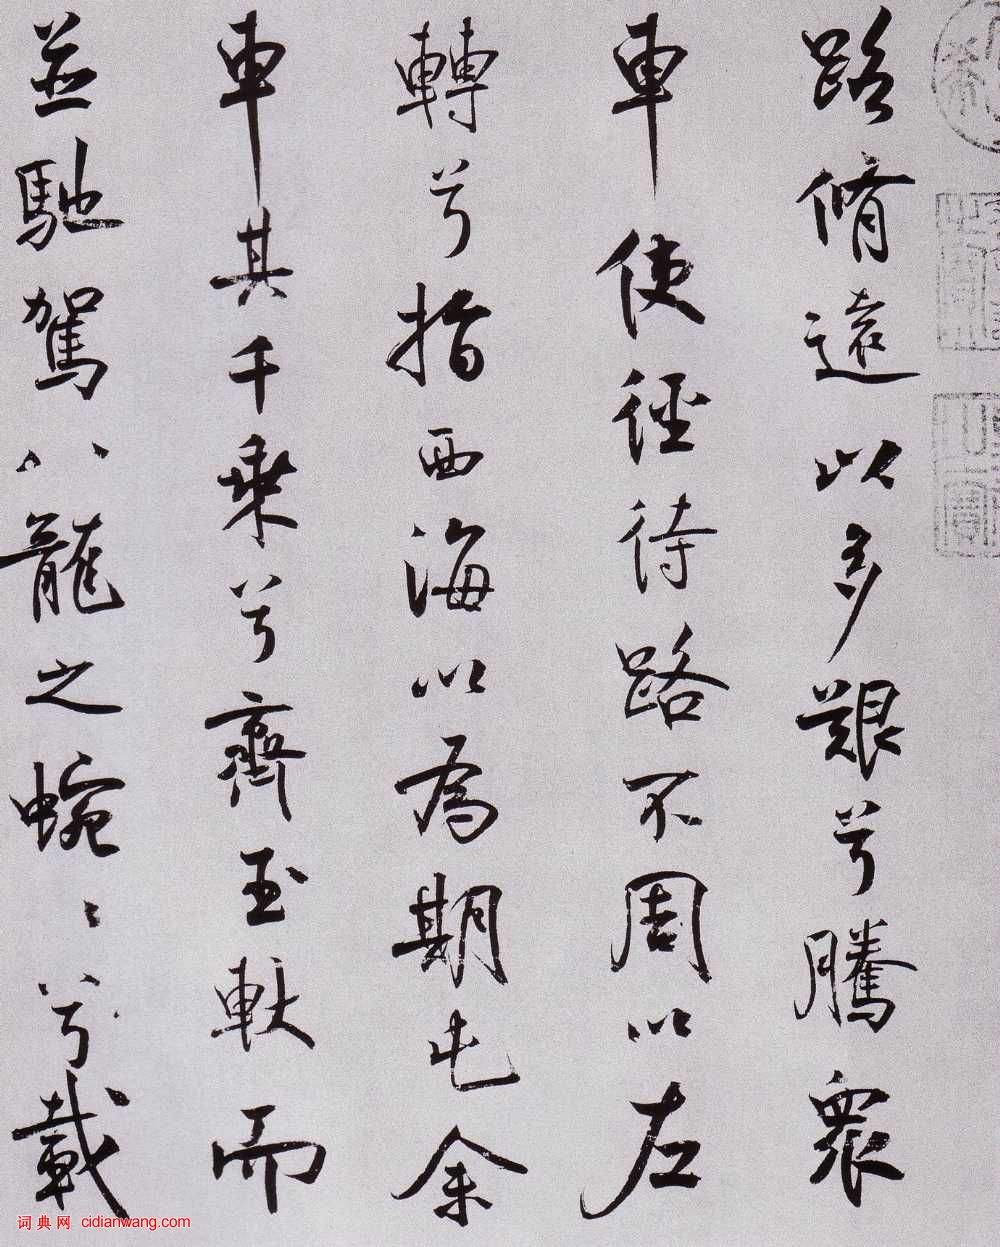 路脩遠以多艱兮騰衆
車使徑待路不周以左
轉兮指西海以為期屯余
車其千乗兮齊玉軑而
並馳駕八龍之蜿〻兮載
词典网 cidianwang.com